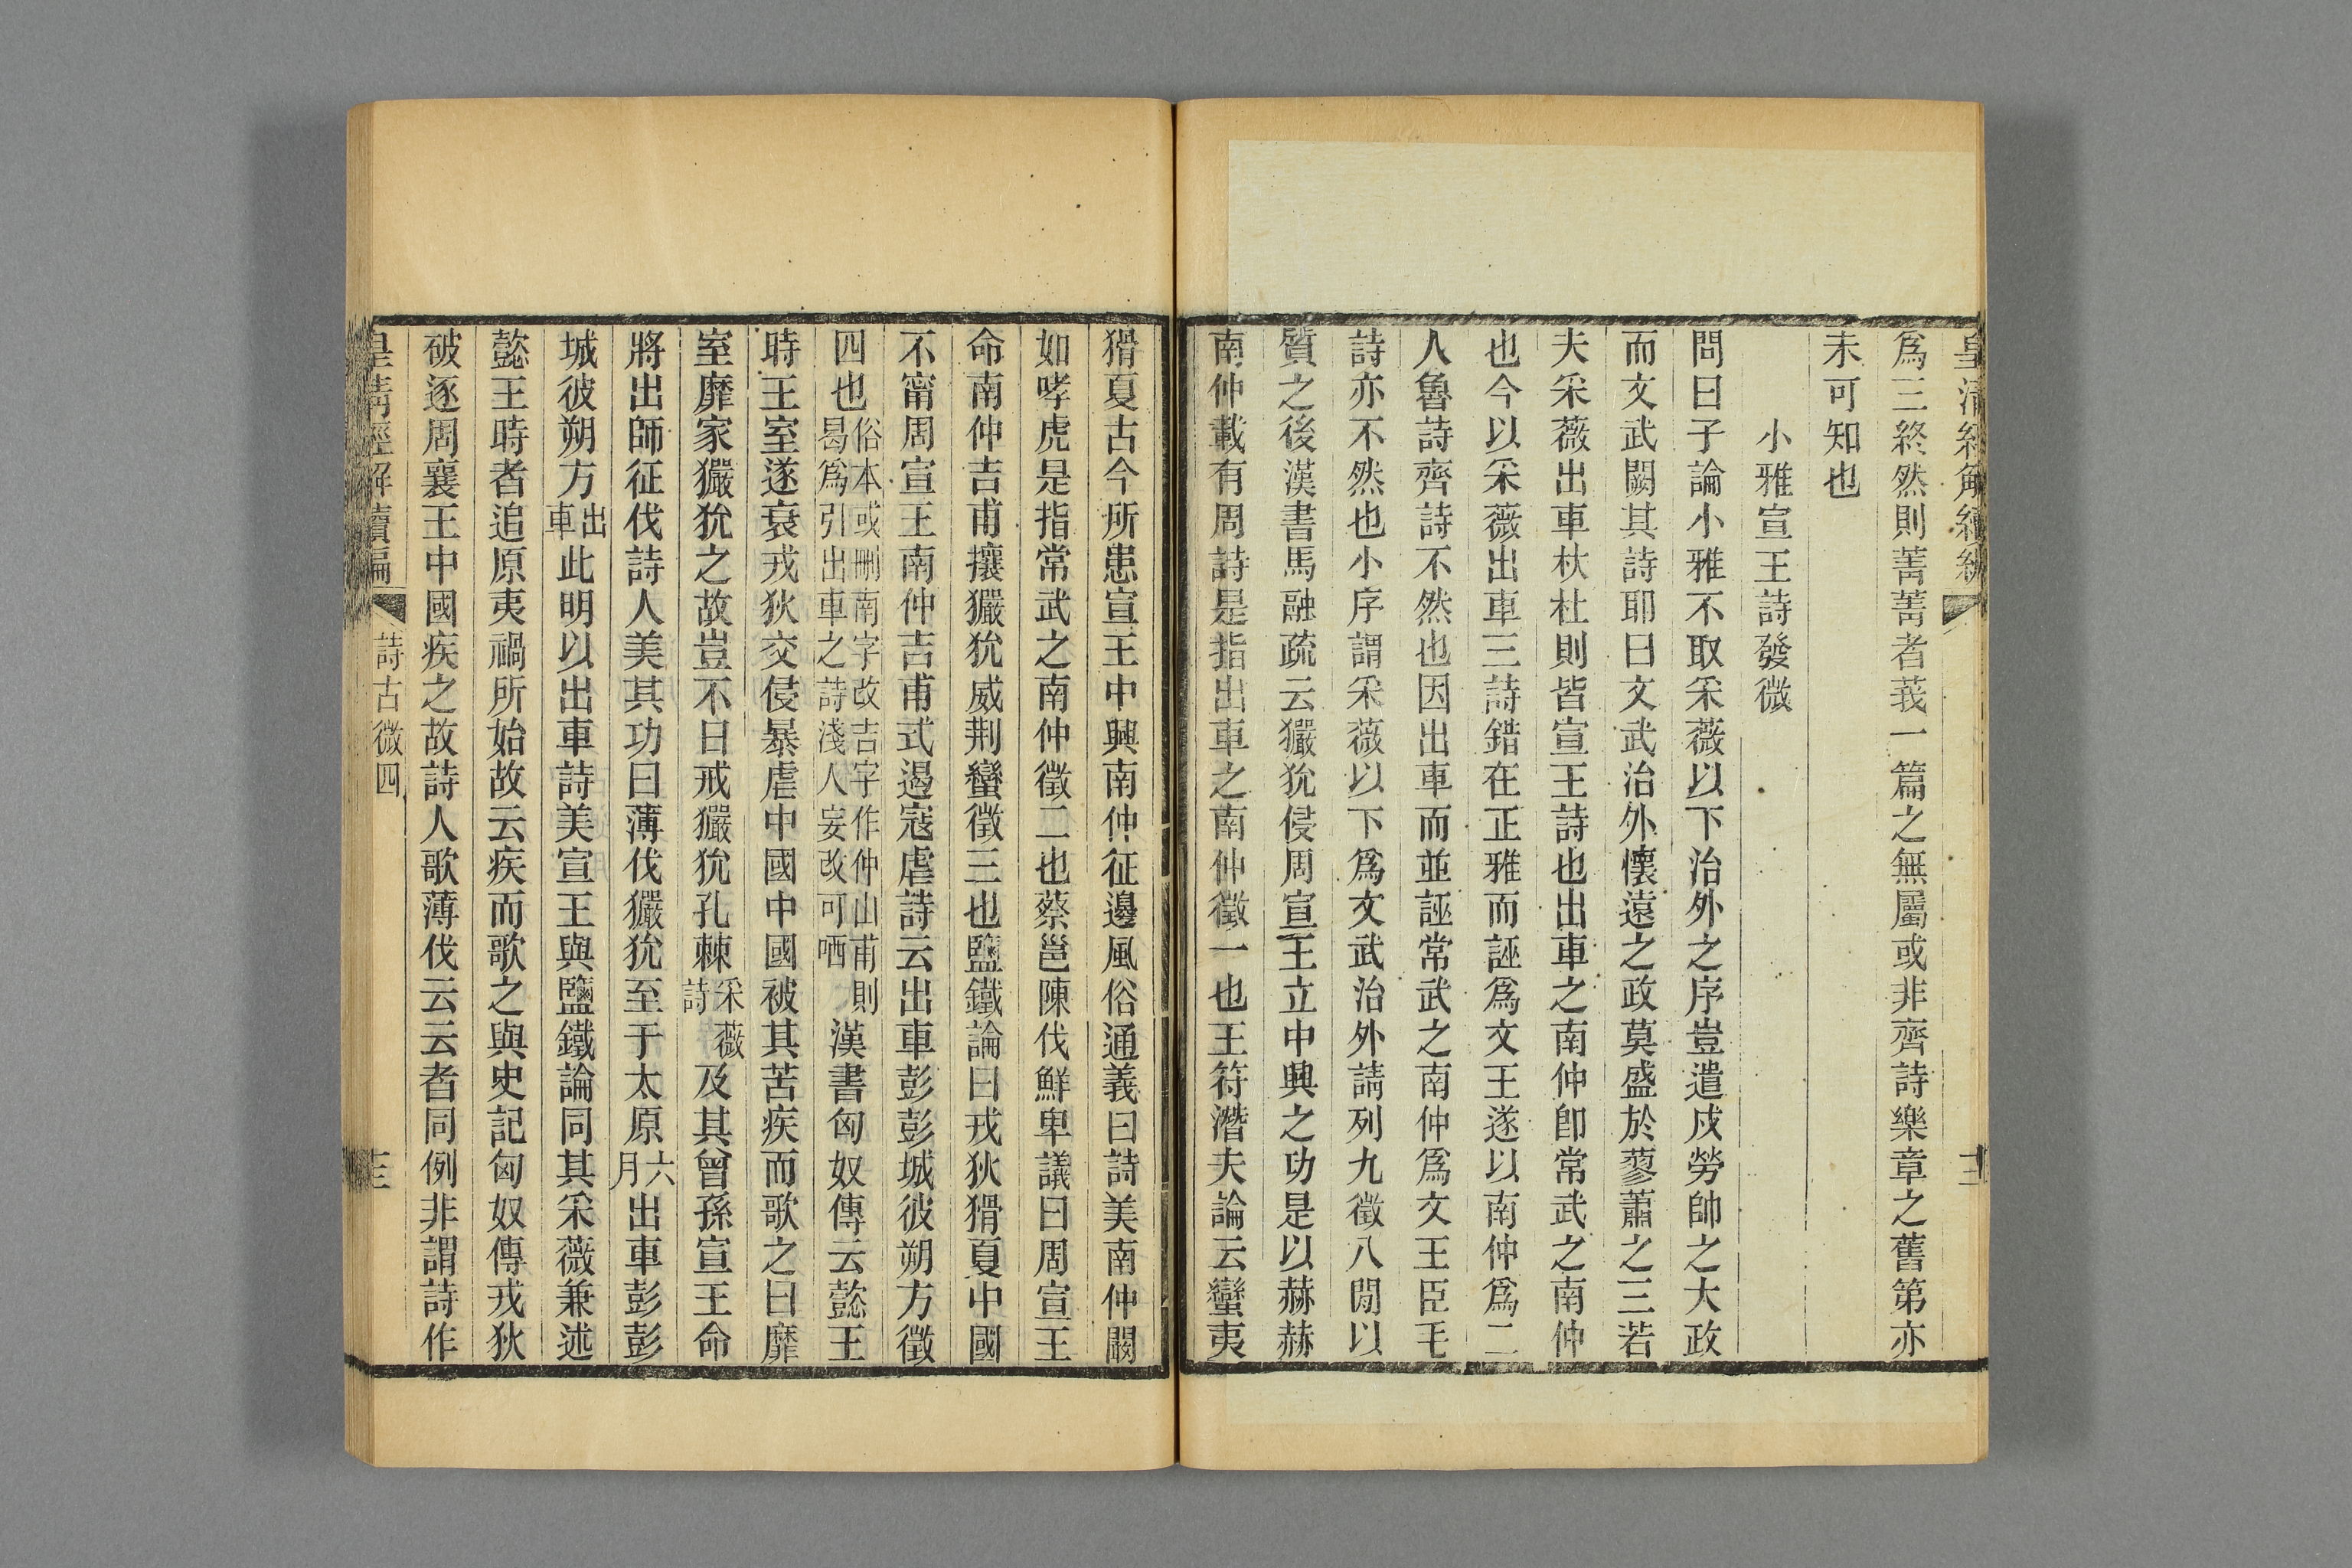 為三終然則菁菁者莪一篇之無屬或非齊詩樂章之舊第亦
未可知也
小雅宣王詩發微
問曰子論小雅不取采薇以下治外之序豈遣戍勞帥之大政
而文武闕其詩耶曰文武治外懷遠之政莫盛於蓼蕭之三若
夫采薇出車杕杜則皆宣王詩也出車之南仲卽常武之南仲
也今以采薇出車三詩錯在正雅而誣爲文王遂以南仲爲二
人魯詩齊詩不然也因出車而並誣常武之南仲爲文王臣毛
詩亦不然也小序謂采薇以下爲文武治外請列九徵八閒以
質之後漢書馬融疏云玁狁侵周宣王立中興之功是以赫赫
南仲載有周詩是指出車之南仲徵一也王符潛夫論云蠻夷
猾夏古今所患宣王中興南仲征邊風俗通義曰詩美南仲闞
如哮虎是指常武之南仲徵二也蔡邕陳伐鮮卑議曰周宣王
命南仲吉甫攘玁狁威荆蠻徵三也鹽鐵論曰戎狄猾夏中國
不甯周宣王南仲吉甫式遏寇虐詩云出車彭彭城彼朔方徵
四也俗本或刪南字改吉字作仲山甫則曷爲引出車之詩淺人妄改可哂漢書匈奴傳云懿王
時王室遂衰戎狄交侵暴虐中國中國被其苦疾而歌之曰靡
室靡家玁狁之故豈不日戒玁狁孔棘采薇詩及其曾孫宣王命
將出師征伐詩人美其功曰薄伐玁狁至于太原六月出車彭彭
城彼朔方出車此明以出車詩美宣王與鹽鐵論同其采薇兼述
懿王時者追原夷禍所始故云疾而歌之與史記匈奴傳戎狄
破逐周襄王中國疾之故詩人歌薄伐云云者同例非謂詩作
皇清經解續編
詩古微四